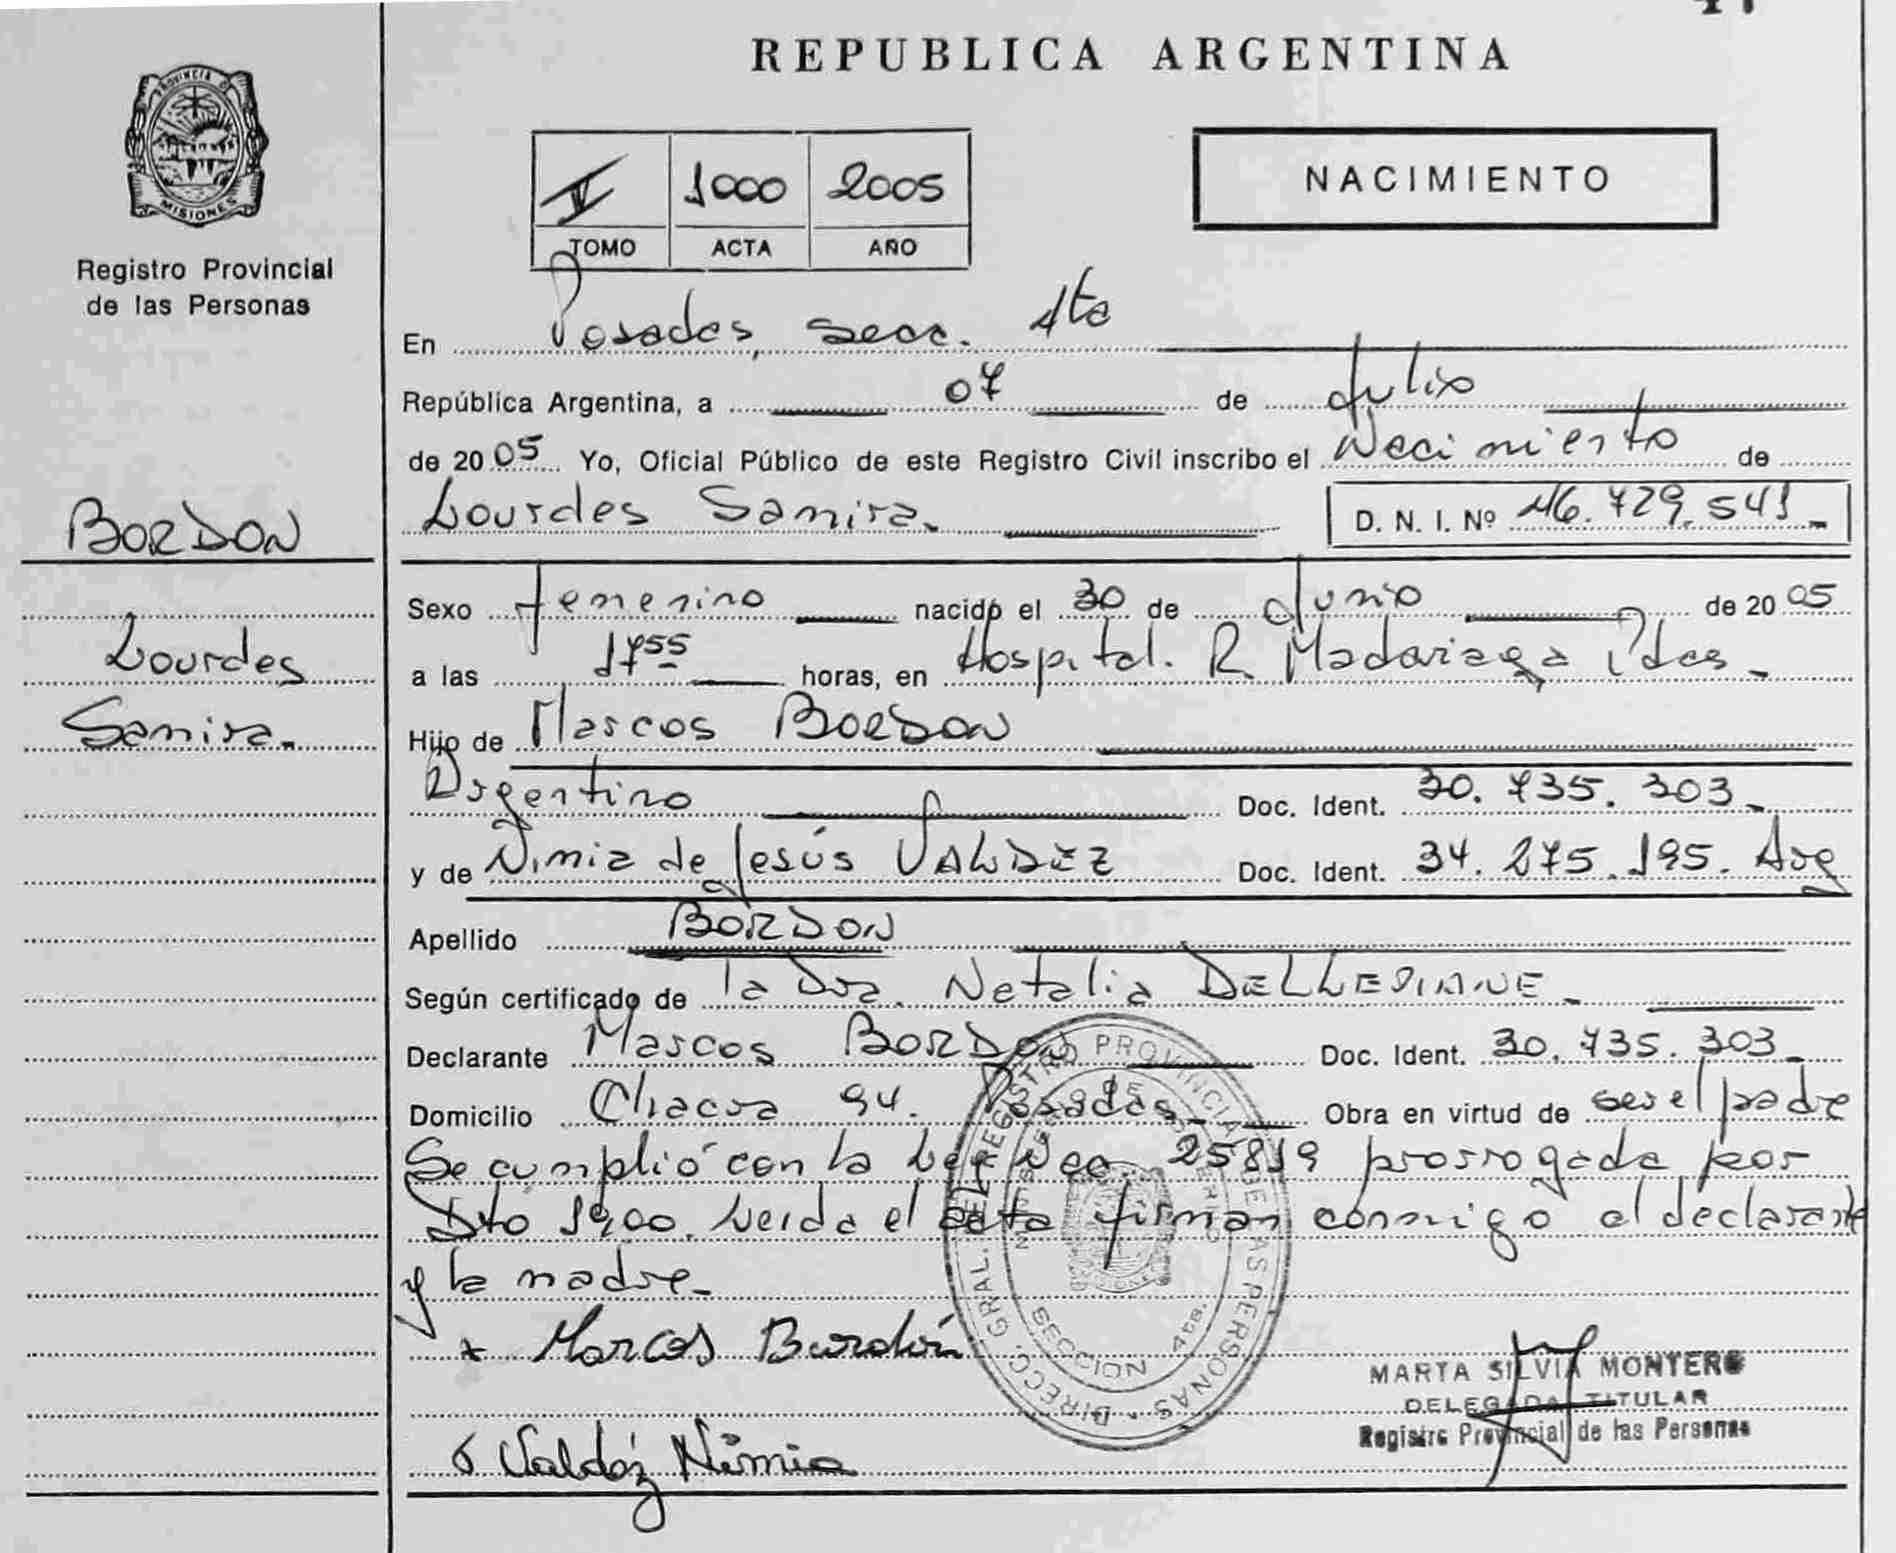 REPUBLICA ARGENTINA
PROVINCIA DE
MISIONES
Registro Provincial
de las Personas
BORDON
Lourdes
Samira.
V 1000 2005
TOMO ACTA AÑO
NACIMIENTO
En Posadas, secc. 4ta
República Argentina, a 07 de Julio
de 2005 Yo, Oficial Público de este Registro Civil inscribo el Nacimiento de
Lourdes Samira. D. N. I. Nº 46.729.541.
Sexo femenino nacido el 30 de Junio de 2005
a las 17 55 horas, en Hospital. R Madariaga Pdas.
Hijo de Marcos BORDON
Argentino Doc. Ident. 30.735.303.
y de Nimia de Jesús VALDEZ Doc. Ident. 34.275.195. Arg
Apellido BORDON
Según certificado de la Dra. Natalia
Declarante Marcos BORDON Doc. Ident. 30.735.303.
Domicilio Chacra 94. Posadas. Obra en virtud de ser el padre
Se cumplió con la Ley Nro. 25819 prorrogada por
Dto 1900. Leida el acta firman conmigo el declarante
y la madre.
Marcos Burdón
Valdéz Nimia
DIRECC. GRAL. DEL REGISTRO PROVINCIAL DE LAS PERSONAS
MINISTERIO DE GOBIERNO
SECCION 4ta.
MARTA SILVIA MONTERO
DELEGADA TITULAR
Registro Provincial de las Personas